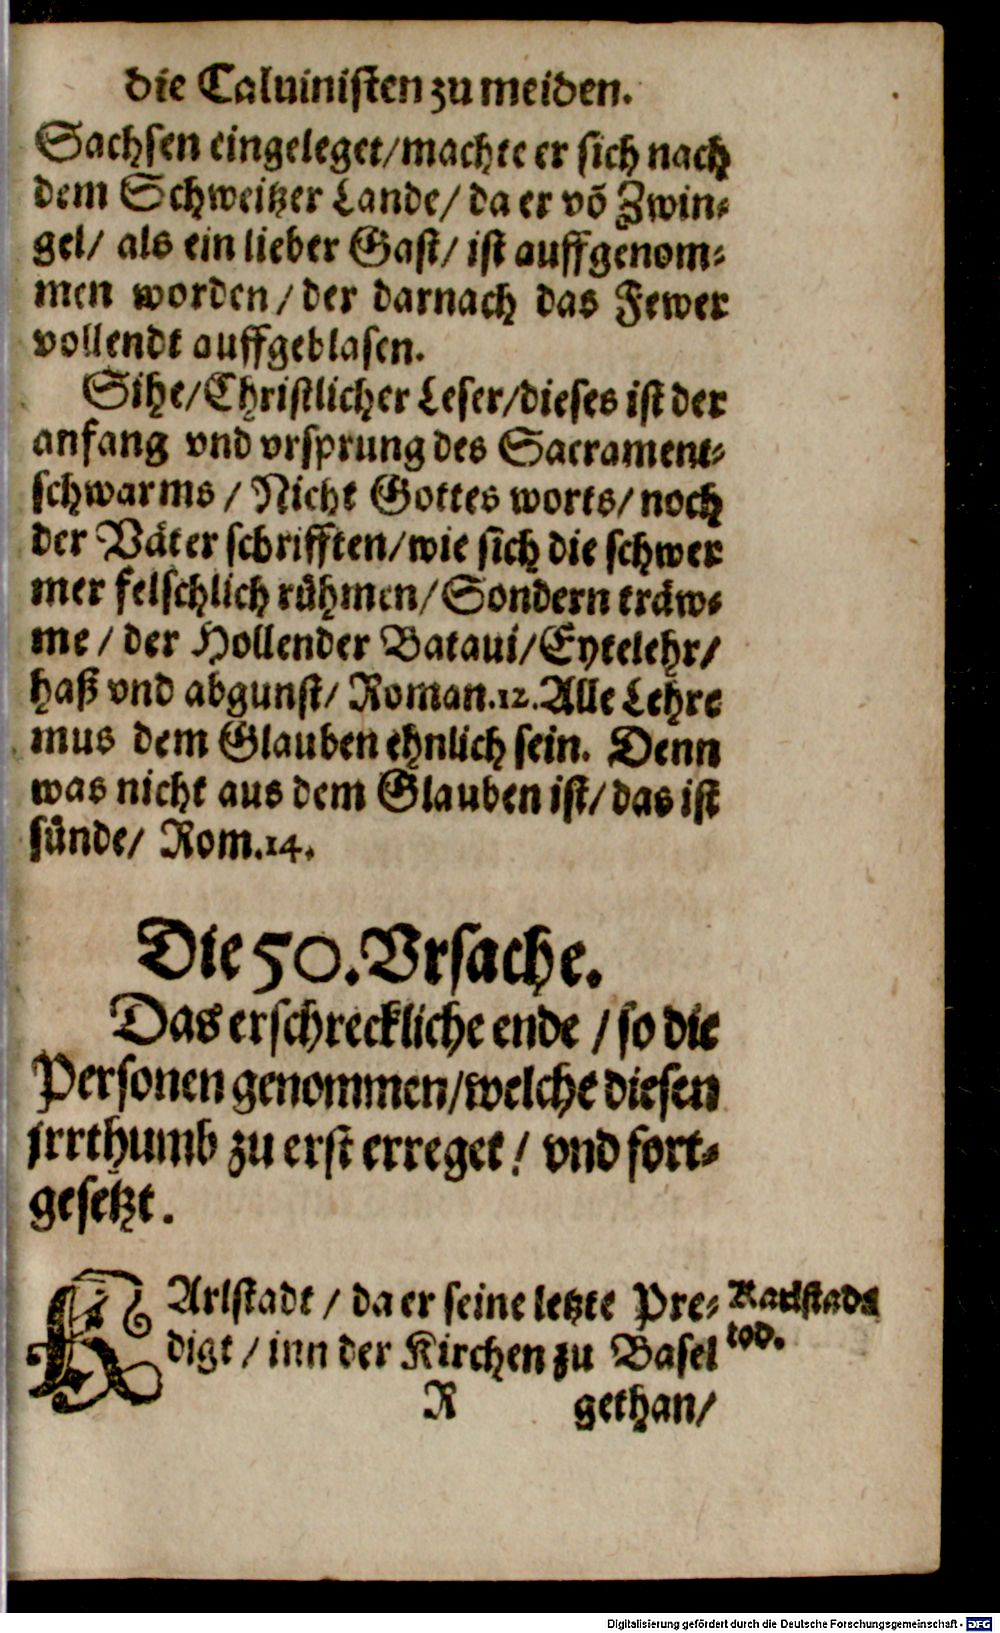 die Caluinisten zu meiden.
Sachsen eingeleget/machte er sich nach
dem Schweitzer Lande/ da er võ Zwin⸗
gel/ als ein lieber Gast/ ist auffgenom⸗
men worden/ der darnach das Fewer
vollendt auffgeblasen.
Sihe/Christlicher Leser/dieses ist der
anfang vnd vrsprung des Sacrament⸗
schwarms/ Nicht Gottes worts/ noch
der Väter schrifften/wie sich die schwer
mer felschlich rühmen/Sondern träw⸗
me/ der Hollender Bataui/Eytelehr/
haß vnd abgunst/ Roman.12.Alle Lehre
mus dem Glauben ehnlich sein. Denn
was nicht aus dem Glauben ist/ das ist
sünde/ Rom.14.
Die 50. Vrsache.
Das erschreckliche ende/ so die
Personen genommen/welche diesen
jrrthumb zu erst erreget/ vnd fort⸗
gesetzt.
KArlstadt/ da er seine letzte Pre⸗
digt/ inn der Kirchen zu Basel
Karlstads
tod.
R gethan/
Digitalisierung gefördert durch die Deutsche Forschungsgemeinschaft - DFG